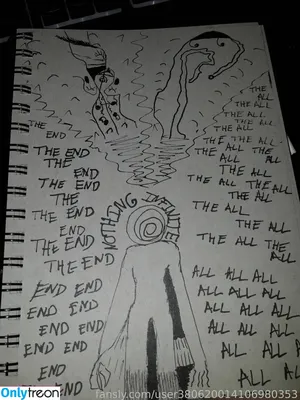 THE
END
THE END
THE
END
THE END
THE
THE END
END
THE END
THE END
END END
END END
END END
END END
END
END
NOTHING INFINITE
THE
ALL
THE ALL
THE ALL
THE ALL
THE ALL
THE THE ALL
THE ALL THE
ALL
THE ALL
THE ALL THE ALL
THE ALL
THE ALL
THE ALL
THE ALL THE
ALL
ALL ALL ALL
ALL ALL ALL
ALL ALL ALL
ALL ALL
ALL ALL
Onlytreon
fansly.com/user380620014106980353